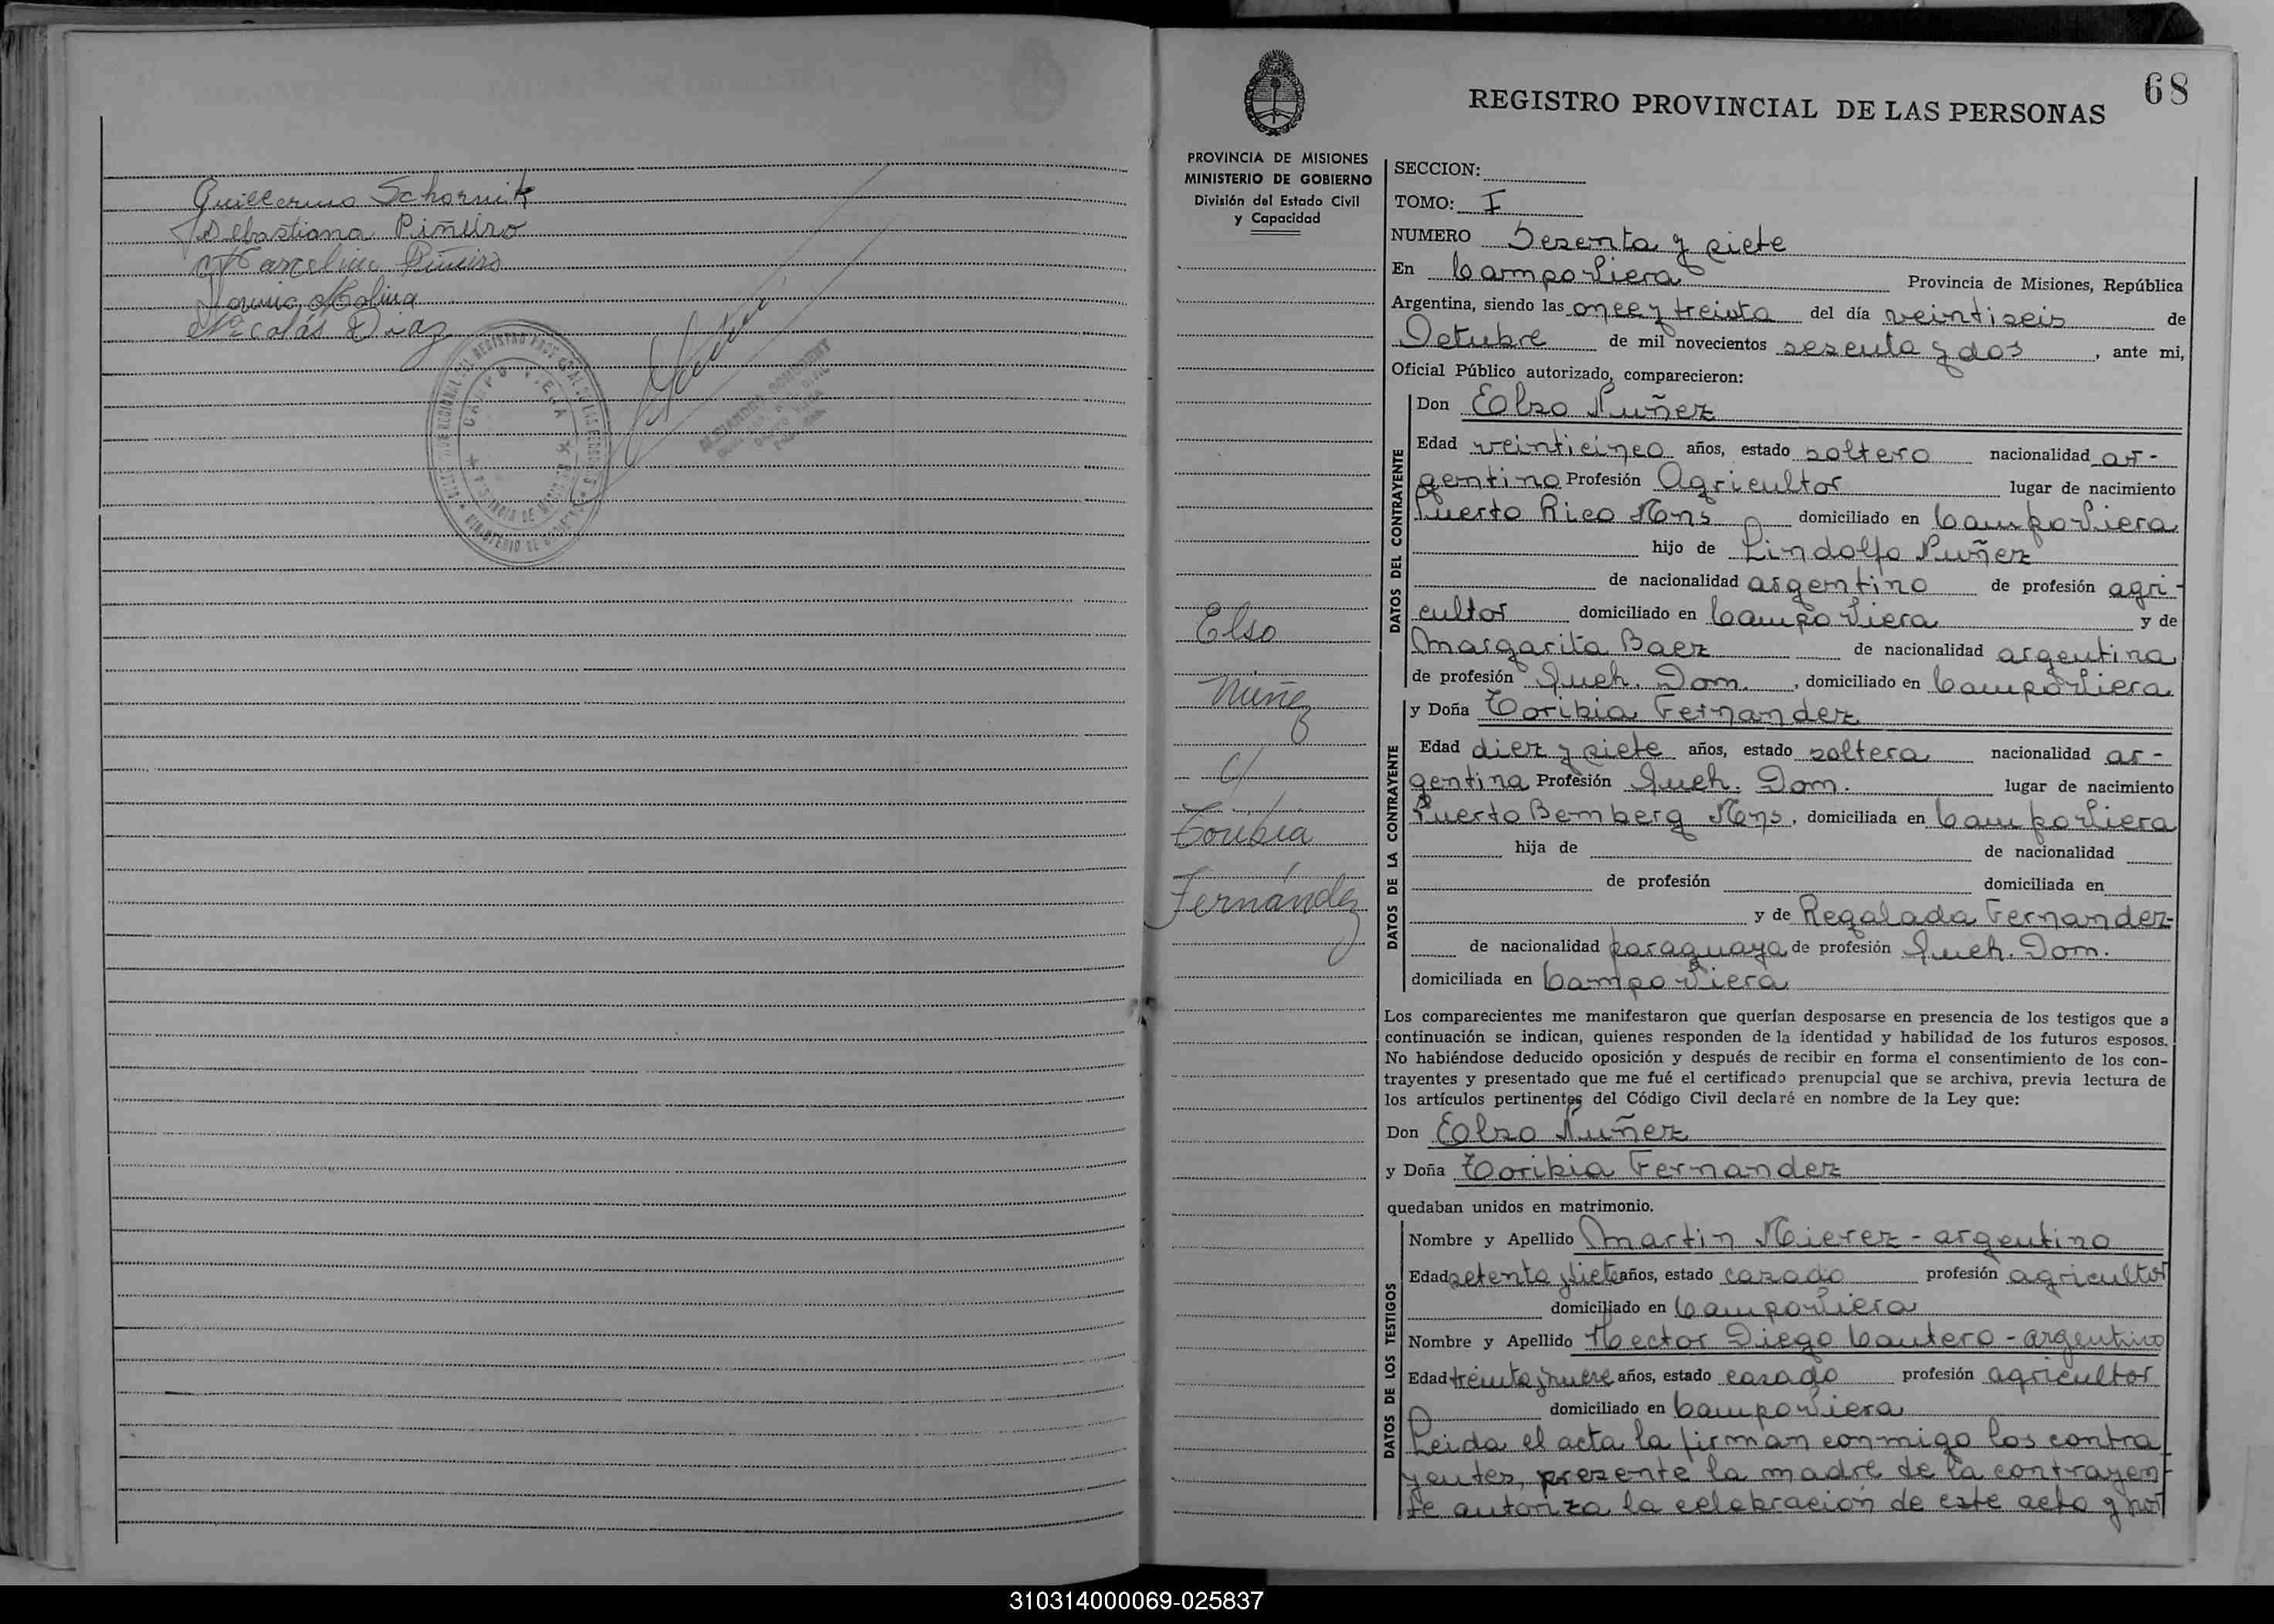 Guillermo Schornik
Sebastiana Piñeiro
Marcelino Piñeiro
Molina
Nicolás Diaz
CAMPO VIERA
68
REGISTRO PROVINCIAL DE LAS PERSONAS
PROVINCIA DE MISIONES
MINISTERIO DE GOBIERNO
División del Estado Civil
y Capacidad
Elso
Núñez
y
Toribia
Fernández
SECCION:
TOMO: I
NUMERO Sesenta y siete
En Campo Viera Provincia de Misiones, República
Argentina, siendo las once y treinta del día veintiseis de
Octubre de mil novecientos sesenta y dos, ante mi,
Oficial Público autorizado, comparecieron:
DATOS DEL CONTRAYENTE
Don Elso Nuñez
Edad veinticinco años, estado soltero nacionalidad ar-
gentino Profesión Agricultor lugar de nacimiento
Puerto Rico Mns domiciliado en Campo Viera
hijo de Lindolfo Nuñez
de nacionalidad argentino de profesión agri-
cultor domiciliado en Campo Viera y de
Margarita Baez de nacionalidad argentina
de profesión Queh. Dom., domiciliado en Campo Viera
DATOS DE LA CONTRAYENTE
y Doña Toribia Fernandez
Edad diez y siete años, estado soltera nacionalidad ar-
gentina Profesión Queh. Dom. lugar de nacimiento
Puerto Bemberg Mns, domiciliada en Campo Viera
hija de de nacionalidad
de profesión domiciliada en
y de Regalada Fernandez
de nacionalidad paraguaya de profesión Queh. Dom.
domiciliada en Campo Viera
Los comparecientes me manifestaron que querían desposarse en presencia de los testigos que a
continuación se indican, quienes responden de la identidad y habilidad de los futuros esposos.
No habiéndose deducido oposición y después de recibir en forma el consentimiento de los con-
trayentes y presentado que me fué el certificado prenupcial que se archiva, previa lectura de
los artículos pertinentes del Código Civil declaré en nombre de la Ley que:
Don Elso Nuñez
y Doña Toribia Fernandez
quedaban unidos en matrimonio.
DATOS DE LOS TESTIGOS
Nombre y Apellido Martin Mierez - argentino
Edad setenta y siete años, estado casado profesión agricultor
domiciliado en Campo Viera
Nombre y Apellido Hector Diego Cautero - argentino
Edad treinta y nueve años, estado casado profesión agricultor
domiciliado en Campo Viera
Leida el acta la firman conmigo los contra
yentes, presente la madre de la contrayen-
te autoriza la celebración de este acto y por
310314000069-025837